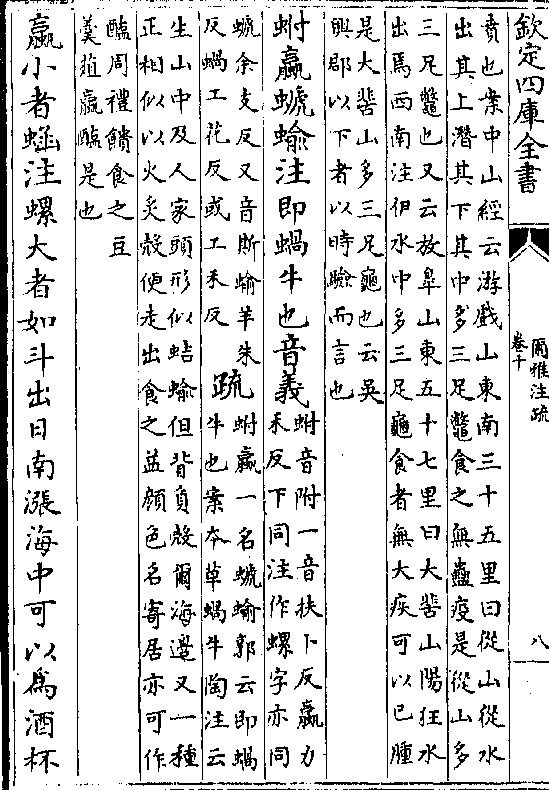 欽定四庫全書
爾雅注疏
卷十
八
賁也案中山經云游戲山東南三十五里曰從山從水
出其上潛其下其中多三足鼈食之無蠱疫是從山多
三足鼈也又云放臯山東五十七里曰大𦬊山陽狂水
出焉西南注伊水中多三足龜食者無大疾可以已腫
是大𦬊山多三足龜也云吳
興郡以下者以時驗而言也
蚹蠃螔蝓注即蝸牛也音義
蚹音附一音扶卜反蠃力
禾反下同注作螺字亦同
螔余支反又音斯蝓羊朱
反蝸工花反或工禾反
疏
蚹蠃一名螔蝓郭云即蝸
牛也案本草蝸牛陶注云
生山中及人家頭形似蛞蝓但背負殼爾海邊又一種
正相似以火炙殼便走出食之益顔色名寄居亦可作
醢周禮饋食之豆
葵菹蠃醢是也
蠃小者蜬注螺大者如斗出日南漲海中可以爲酒杯